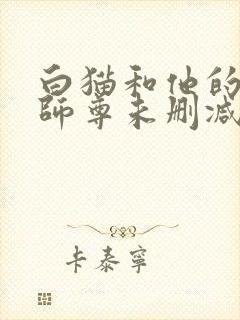 白猫和他的
師尊未删减
卡泰寧